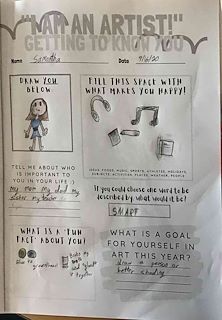 "I AM AN ARTIST!"
GETTING TO KNOW YOU
Name Samantha Date 9/16/20
DRAW YOU
BELOW.
FILL THIS SPACE WITH
WHAT MAKES YOU HAPPY!
IDEAS: FOODS, MUSIC, SPORTS, ATHLETES, HOLIDAYS,
SUBJECTS, ACTIVITIES, PLACES, WEATHER, PEOPLE,
TELL ME ABOUT WHO
IS IMPORTANT TO
YOU IN YOUR LIFE :)
my mom my dad my
sister my
If you could choose one word to be
described by, what would it be?
SMART
WHAT IS A "FUN
FACT" ABOUT YOU?
WHAT IS A GOAL
FOR YOURSELF IN
ART THIS YEAR?
draw a person or
better shading